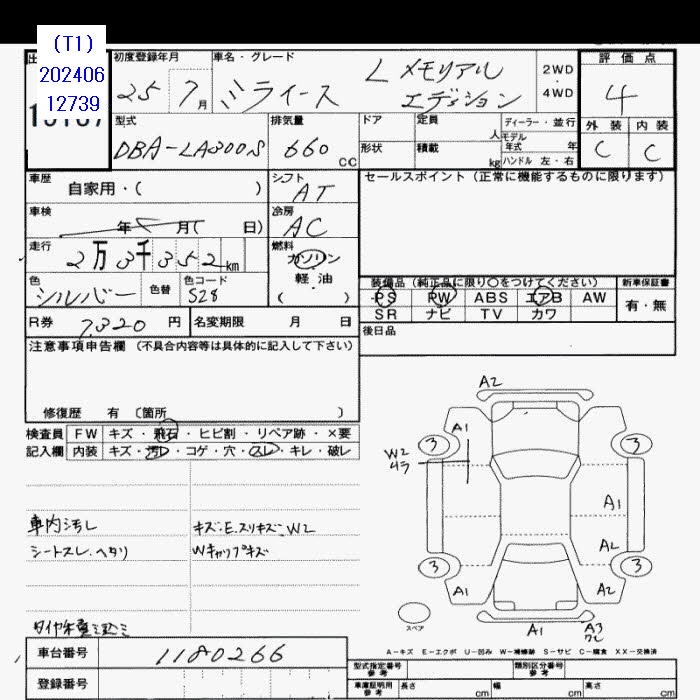 (T1)
202406
12739
初度登録年月
車名・グレード
評価点
25 7月
ミライース
L メモリアル
エディション
2WD
4WD
4
型式
排気量
ドア
定員
人
ディーラー・並行
外装
内装
DBA-LA300S
660
CC
形状
積載
kg
モデル
年式
年
ハンドル 左・右
C
C
車歴
自家用・( )
シフト
AT
セールスポイント(正常に機能するものに限ります)
車検
年 月( 日)
冷房
AC
走行
2万3千352km
燃料
ガソリン
軽油
( )
色
シルバー
色替
色コード
S28
装備品(純正品に限り○をつけてください)
新車保証書
PS PW ABS エアB AW
有・無
SR ナビ TV カワ
R券
7,320 円
名変期限 月 日
後日品
注意事項申告欄(不具合内容等は具体的に記入して下さい)
修復歴 有 〔箇所 〕
検査員
記入欄
FW キズ・飛石・ヒビ割・リペア跡・×要
内装 キズ・汚レ・コゲ・穴・スレ・キレ・破レ
A2
A1
3
3
W2
A1
A2
3
3
A1
A2
スペア
A1
A3
車内汚レ
キズ・E.スリキズ・W2
シートスレ.ヘタリ
Wキャップキズ
A-キズ E-エクボ U-凹み W-補修跡 S-サビ C-腐食 XX-交換済
車台番号
1180266
登録番号
型式指定番号
参考
類別区分番号
参考
車庫証明用
参考
長さ cm
幅 cm
高さ cm